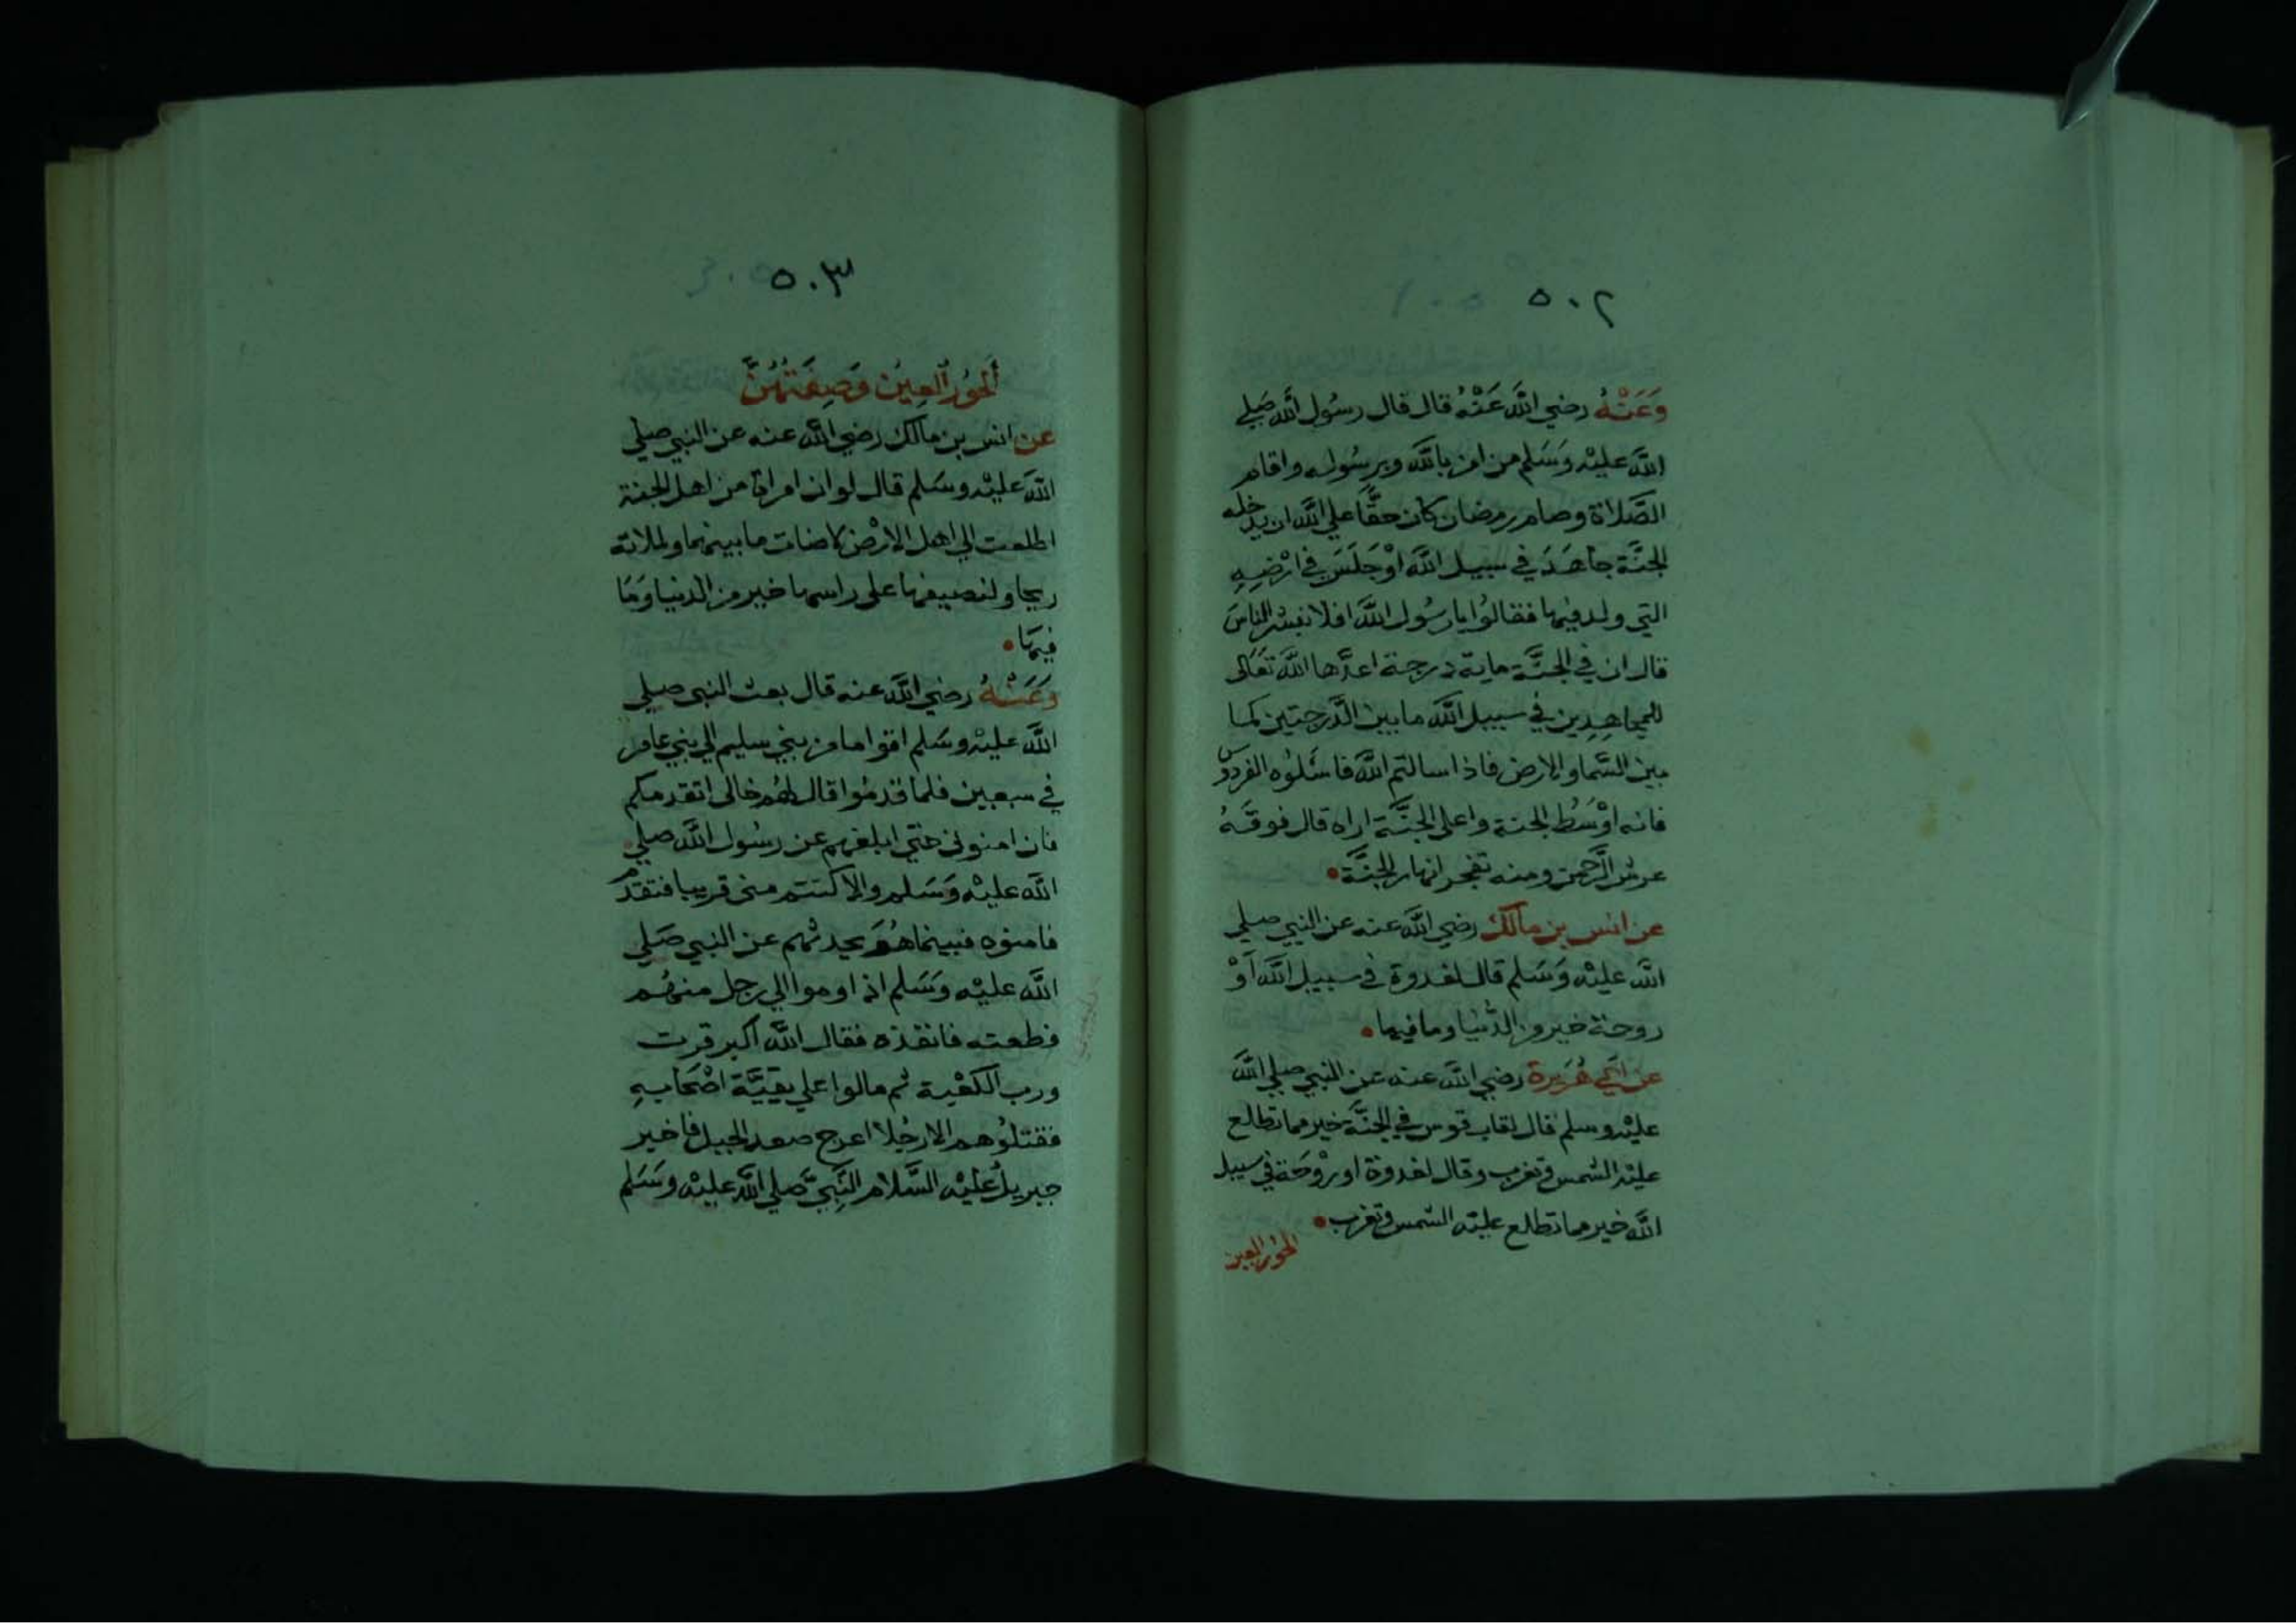 ٥٠٢
وَعَنْهُ رضي اللَّه عَنْهُ قال قال رسُول اللَّه صَلي
اللَّه عليْه وَسَلم من امن باللَّه وبرسُوله واقام
الصَّلاة وصام رمضان كان حقًّا علي اللَّه ان يدخله
الجنَّة جاهَدَ في سبيل اللَّه اوْ جَلَسَ في ارْضِهِ
التي ولد فيها فقالوُا يا رسُول اللَّه افلا نبشر الناسَ
قال ان في الجنَّة ماية درجة اعدَّها اللَّه تعَالى
للمجاهِدِين في سبيل اللَّه ما بين الدَّرجتين كما
بين السَّما والارض فاذا سالتم اللَّه فاسْئلوُه الفردوس
فانه اوْسَطُ الجنة واعلى الجنَّة اراه قال فوقَهُ
عرش الرَّحمن ومنه تفجر انهار الجنَّة
عن انس بن مالك رضي اللَّه عنه عن النبي صلي
اللَّه عليْه وَسَلم قال لغدوة في سبيل اللَّه اَوْ
روحة خير من الدُّنيا وما فيها
عن اَبي هُرَيرة رضي اللَّه عنه عن النبي صلي اللَّه
عليْه وسلم قال لقاب قوس في الجنَّة خير مما تطلع
عليْه الشمس وتغرب وقال لغدوة او رَوْحَة في سبيل
اللَّه خير مما تطلع عليْه الشمس وتغرب
الحوُر العين
٥٠٣
اَلحوُر العِينُ وَصِفَتهُنَّ
عن انس بن مالك رضي اللَّه عنه عن النبي صلي
اللَّه عليْه وسَلم قال لو ان امراة من اهل الجنة
اطلعت الي اهل الارْض لاضات ما بينهما ولملاته
ريحا ولنصيفها على راسها خير من الدنيا وَمَا
فيهَا
وَعَنْهُ رضي اللَّه عنه قال بعث النبي صلي
اللَّه عليْه وسَلم اقواما من بني سليم الي بني عامر
في سبعين فلما قدمُوا قال لهُم خالي اتقدمكم
فان امنوني حتَّي ابلغهم عن رسُول اللَّه صلي
اللَّه عليْه وَسَلم والا كنتم مني قريبا فتقدم
فامنوه فبينما هُوَ يحدثهم عن النبي صَلي
اللَّه عليْه وَسَلم اذ اوموا الي رجل منهُم
فطعنه فانفذه فقال اللَّه اكبر فزت
ورب الكعْبة ثم مالوا علي بقيَّة اصْحَابهِ
فقتلوُهم الا رجُلا اعرج صعد الجبل فاخبر
جبريلُ عليْه السَّلام النَّبيَّ صَلي اللَّه عليْه وسَلم